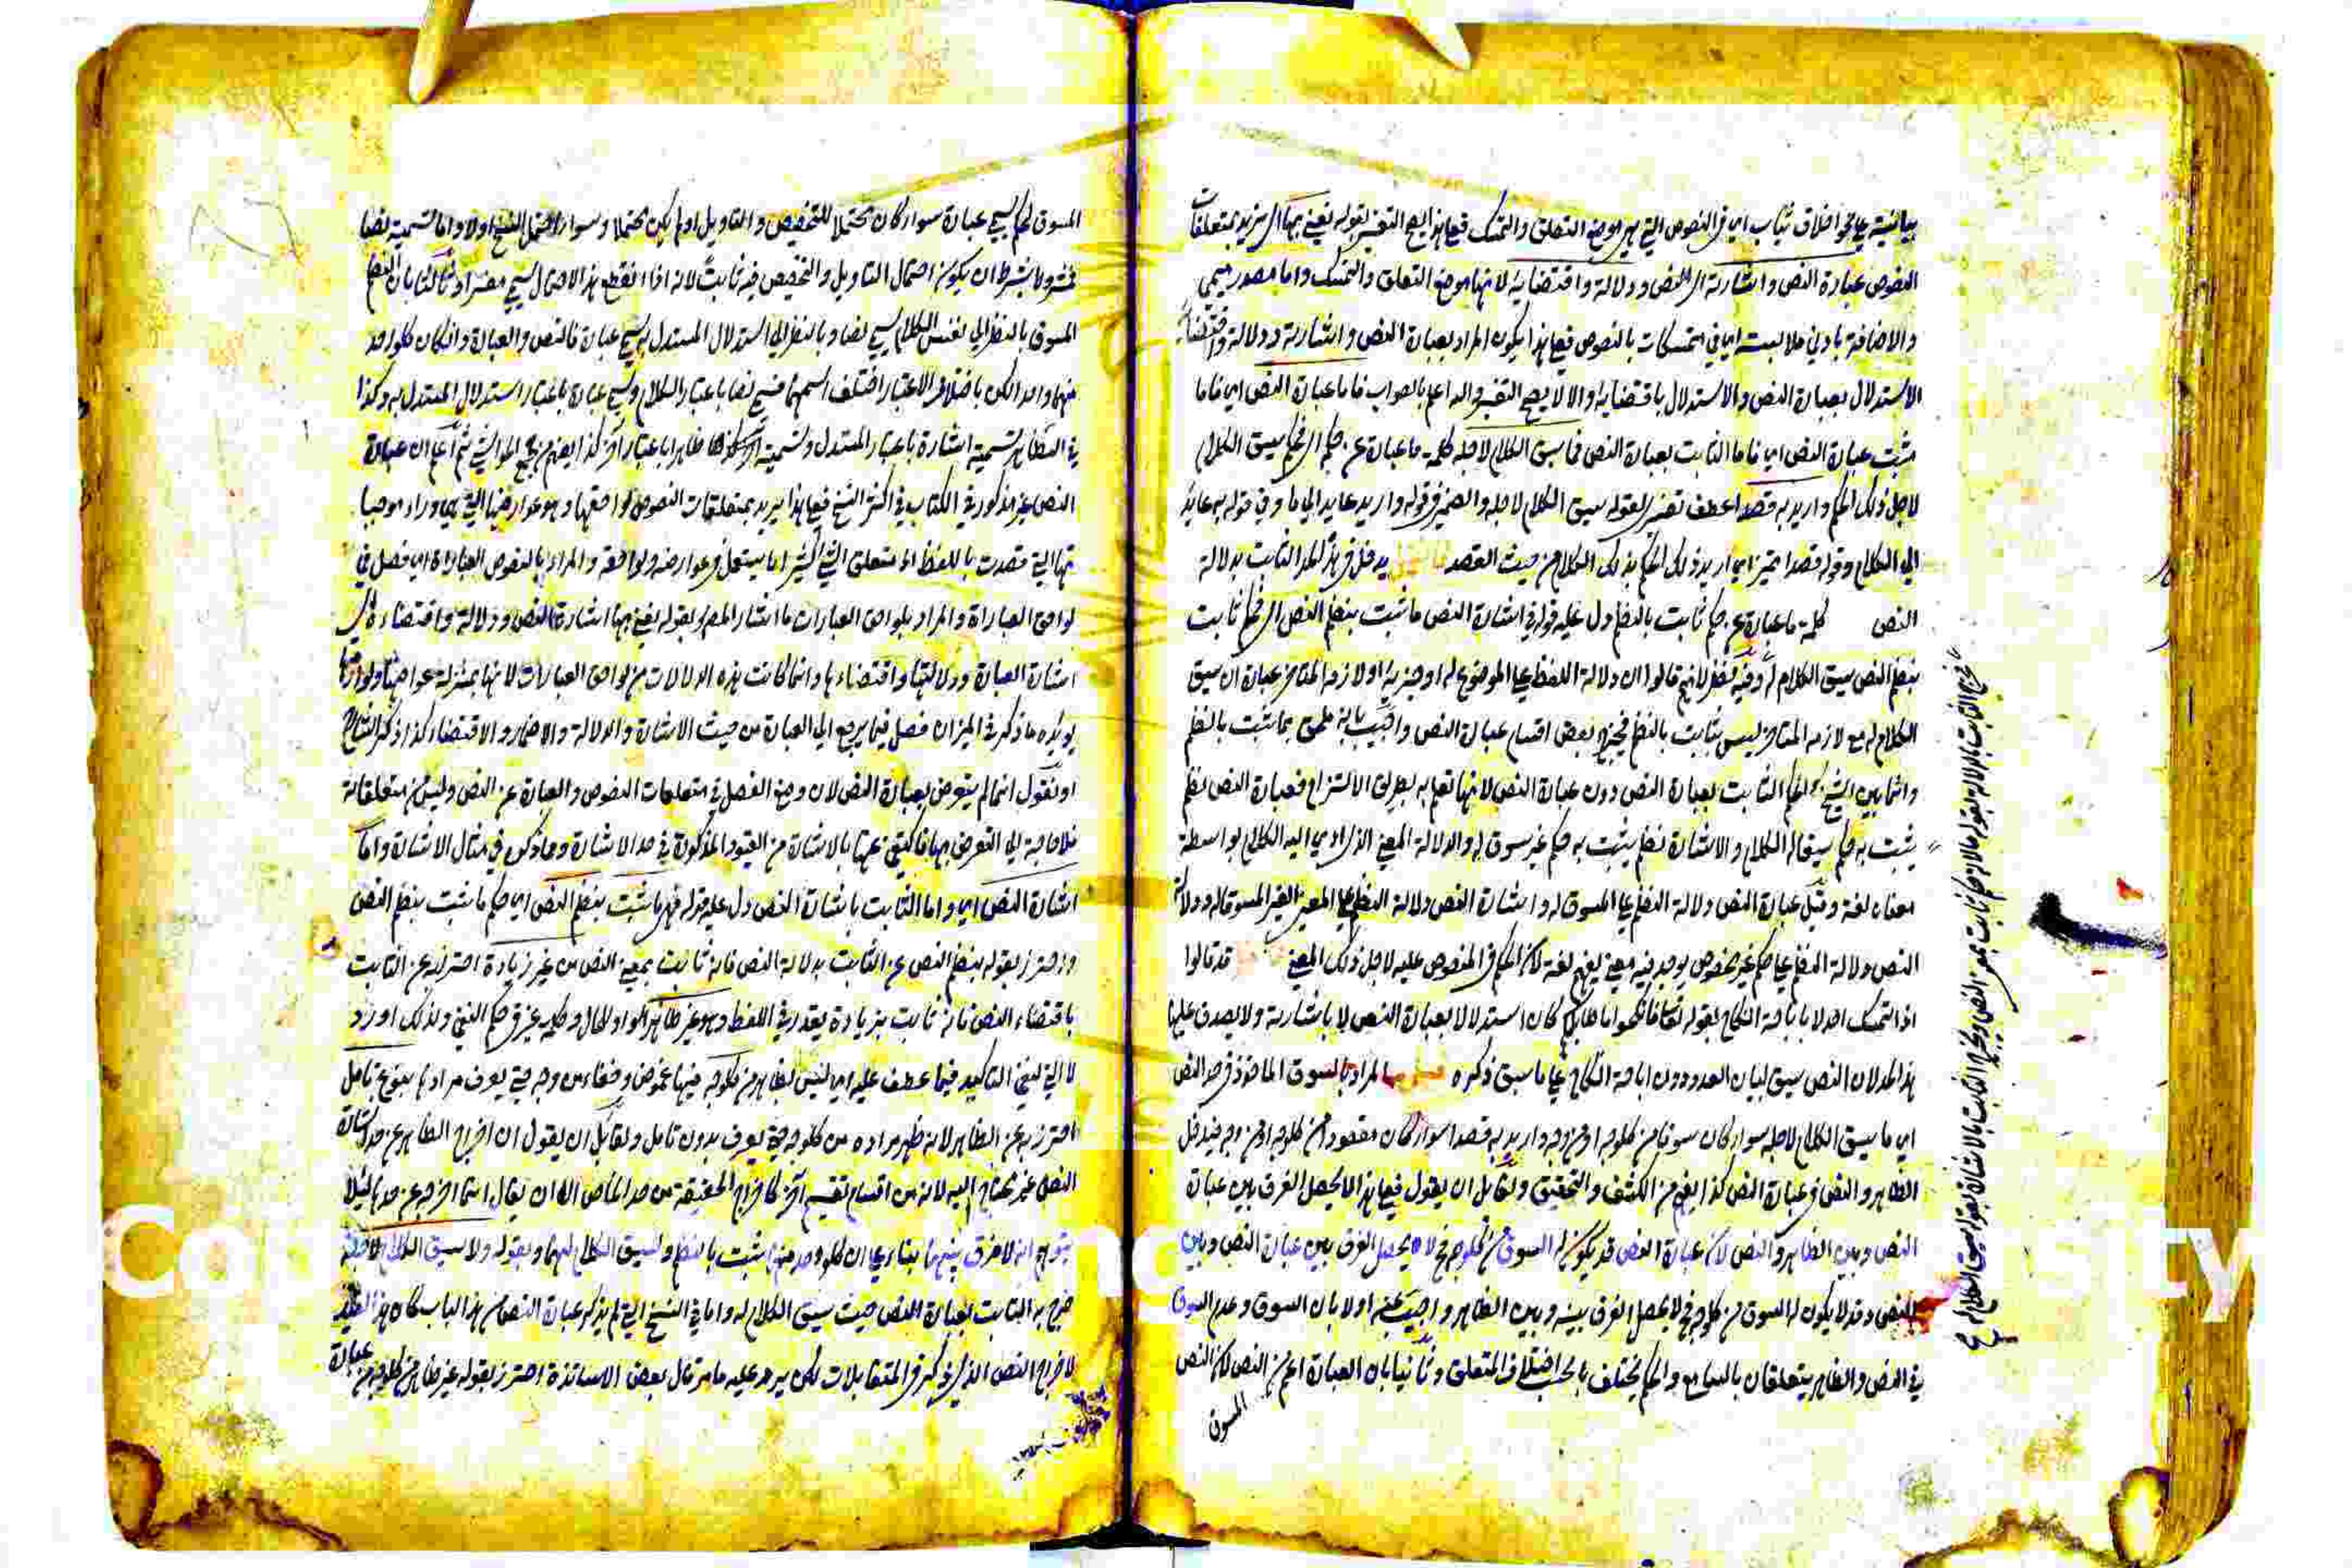 بيانية على نحو اخلاق ثياب اي في النصوص التي هي موضع التعلق والتمسك فعلى هذا يصح التفسير بقوله نعني بها اي نريد بمتعلقات
النصوص عبارة النص واشارته اي النص ودلالته واقتضايه لانها موضع التعلق والتمسك واما مصدر ميمي
والاضافة بادنى ملابسة اي في تمسكات بالنصوص فعلى هذا يكون المراد بعبارة النص واشارته ودلالته واقتضائه
الاستدلال بعبارة النص والاستدلال باقتضايه والا لا يصح التفسير والله اعلم بالصواب فاما عبارة النص اي فاما
مثبت عبارة النص اي فاما الثابت بعبارة النص فما سيق الكلام لاجله كلمة ما عبارة عن حكم اي فحكم سيق الكلام
لاجل ذلك الحكم واريد به قصدا عطف تفسير لقوله سيق الكلام لاجله والضمير في قوله واريد عايد الى ما وفي قوله به عايد
الى الكلام وقوله قصدا تميز اي اريد ذلك الحكم بذلك الكلام من حيث القصد يدخل في هذا الحد الثابت بدلالة
النص كلمة ما عبارة عن حكم ثابت بالنظم دل عليه قوله في اشارة النص ما ثبت بنظم النص اي حكم ثابت
بنظم النص سيق الكلام له وفيه نظر لانهم قالوا ان دلالة اللفظ على الموضوع له او جزءه او لازمه المتاخر عبارة ان سيق
الكلام له مع لازمه المتاخر ليس بثابت بالنظم فيخرج بعض اقسام عبارة النص واجيب بانه ملحق بما ثبت بالنظم
وانما بين الشيخ الحكم الثابت بعبارة النص دون عبارة النص لانها تعلم به بطريق الالتزام فعبارة النص نظم
يثبت به حكم سيق له الكلام والاشارة نظم يثبت به حكم غير مسوق له والدلالة المعنى الذي ادي اليه الكلام بواسطة
معناه لغة وقيل عبارة النص دلالة النظم على المسوق له واشارة النص دلالة النظم على المعنى الغير المسوق له ودلالة
النص دلالة النظم على حكم غير منصوص يوجد فيه معنى يفهم لغة لان الحكم في المنصوص عليه لاجل ذلك المعنى قد قالوا
اذا تمسك احد لاباحة النكاح بقوله تعالى فانكحوا ما طاب لكم كان استدلالا بعبارة النص لا باشارته ولا يصدق عليها
هذا الحد لان النص سيق لبيان العدد دون اباحة النكاح على ما سبق ذكره المراد بالسوق الماخوذ في حد النص
اي ما سيق الكلام لاجله سواء كان سوقا من كل وجه او من وجه واريد به قصدا سواء كان مقصودا من كل وجه او من وجه فيدخل
الظاهر والنص في عبارة النص كذا يفهم من الكشف والتحقيق ولقائل ان يقول فعلى هذا لا يحصل الفرق بين عبارة
النص وبين الظاهر والنص لان عبارة النص قد يكون له السوق من كل وجه فح لا يحصل الفرق بين عبارة النص وبين
النص وقد لا يكون له السوق من كل وجه فح لا يحصل الفرق بينه وبين الظاهر واجيب عنه اولا بان السوق وعدم السوق
في النص والظاهر يتعلقان بالسامع والحكم يختلف بحسب اختلاف المتعلق وثانيا بان العبارة اعم من النص لان النص
المسوق
المسوق لحكم يسمى عبارة سواء كان محتملا للتخصيص والتاويل او لم يكن محتملا وسواء احتمل النسخ او لا واما تسميته نصا
فمشروط بشرط ان يكون احتمال التاويل والتخصيص فيه ثابتا لانه اذا انقطع هذا الاحتمال يسمى مفسرا وثالثا بان النظم
المسوق بالنظر الى نفس الكلام يسمى نصا وبالنظر الى استدلال المستدل به يسمى عبارة فالنص والعبارة وان كان كل واحد
منهما واحدا لكن باختلاف الاعتبار اختلف اسمهما فيسمى نصا باعتبار الكلام ويسمى عبارة باعتبار استدلال المستدل به وكذا
في الظاهر تسميته اشارة باعتبار المستدل وتسميته ظاهرا باعتبار آخر كذا يفهم من جميع الحواشي ثم اعلم ان عبارة
النص غير مذكور في الكتاب في اكثر النسخ فعلى هذا يريد بمتعلقات النصوص لواحقها وهو عوارضها التي هي وراء موجبا
تها التي قصدت باللفظ اذ متعلق الشيء كثيرا ما يستعمل في عوارضه ولواحقه والمراد بالنصوص العبارات اي فصل في
لواحق العبارات والمراد بلواحق العبارات ما اشار المص بقوله نعني بها اشارة النص ودلالته واقتضاءه اي
اشارة العبارة ودلالتها واقتضاءها وانما كانت هذه الدلالات من لواحق العبارات لانها بمنزلة عوارضها ولواحقها
يؤيده ما ذكر في الميزان فصل فيما يرجع الى العبارة من حيث الاشارة والدلالة والاضمار والاقتضاء كذا ذكر الشارح
او نقول انما لم يتعرض بعبارة النص لان وضع الفصل في متعلقات النصوص والعبارة عن النص وليس من متعلقاته
فلا حاجة الى التعرض بها فاكتفى عنها بالاشارة من القيود المذكورة في حد الاشارة وما ذكر في مثال الاشارة واما
اشارة النص اي واما الثابت باشارة النص دل عليه قوله فهي ما ثبت بنظم النص اي حكم ما ثبت بنظم النص
واحترز بقوله بنظم النص عن الثابت بدلالة النص فانه ثابت بمعنى النص من غير زيادة احترز به عن الثابت
باقتضاء النص فانه ثابت بزيادة يقدر في اللفظ وهو غير ظاهر الواو للحال وكلمة غير في حكم النفي ولذلك اورد
لا التي لنفي التاكيد فيما عطف عليه اي ليس بظاهر من كل وجه فيها غموض وخفاء من وجه حتى يعرف مراده بنوع تامل
احترز به عن الظاهر لانه ظهر مراده من كل وجه حتى يعرف بدون تامل ولقائل ان يقول ان اخراج الظاهر عن حد اشارة
النص غير محتاج اليه لانه من اقسام تقسيم آخر كاخراج الحقيقة من حد الخاص الا ان يقال انما اخرجه عن حدها ليلا
يتوهم انه لا فرق بينهما بناء على ان كل واحد منهما يثبت بالنظم وليس سيق الكلام لهما وبقوله ولا سيق الكلام لاجله
خرج به الثابت بعبارة النص حيث سيق الكلام له واما في النسخ التي لم يذكر عبارة النص من هذا الباب كان هذا القيد
لاخراج النص الذي ذكر في المتقابلات لكن يرد عليه ما مر قال بعض الاساتذة احترز بقوله غير ظاهر من كل وجه عن عبارة